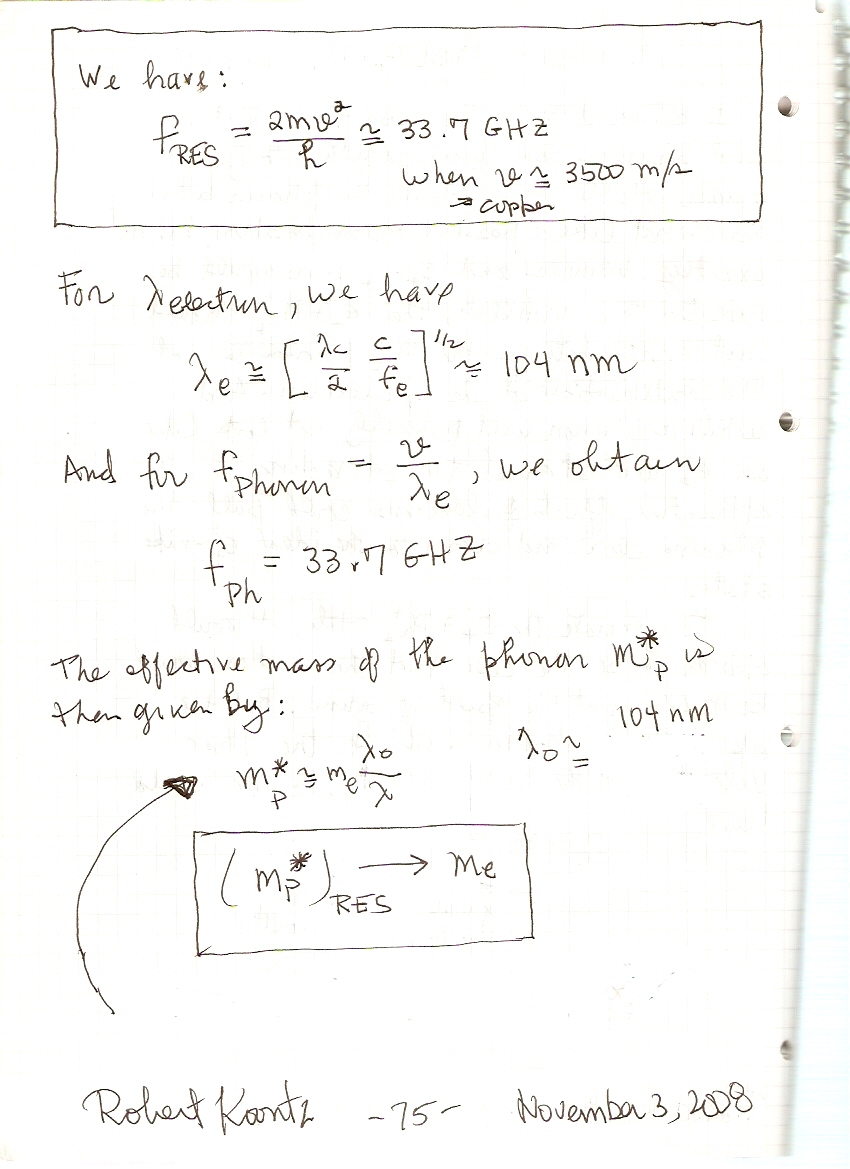 We have:
f_RES = 2mv²/h ≅ 33.7 GHZ
when v ≅ 3500 m/s
→ copper
For λelectron, we have
λ_e ≅ [λ_c/2 c/f_e]^1/2 ≅ 104 nm
And for f_phonon = v/λ_e, we obtain
f_ph = 33.7 GHZ
The effective mass of the phonon m*_p is
then given by:
104 nm
λ_o ≅
m*_p ≅ m_e λ_o/λ
(m_p*)_RES → m_e
Robert Koontz -75- November 3, 2008